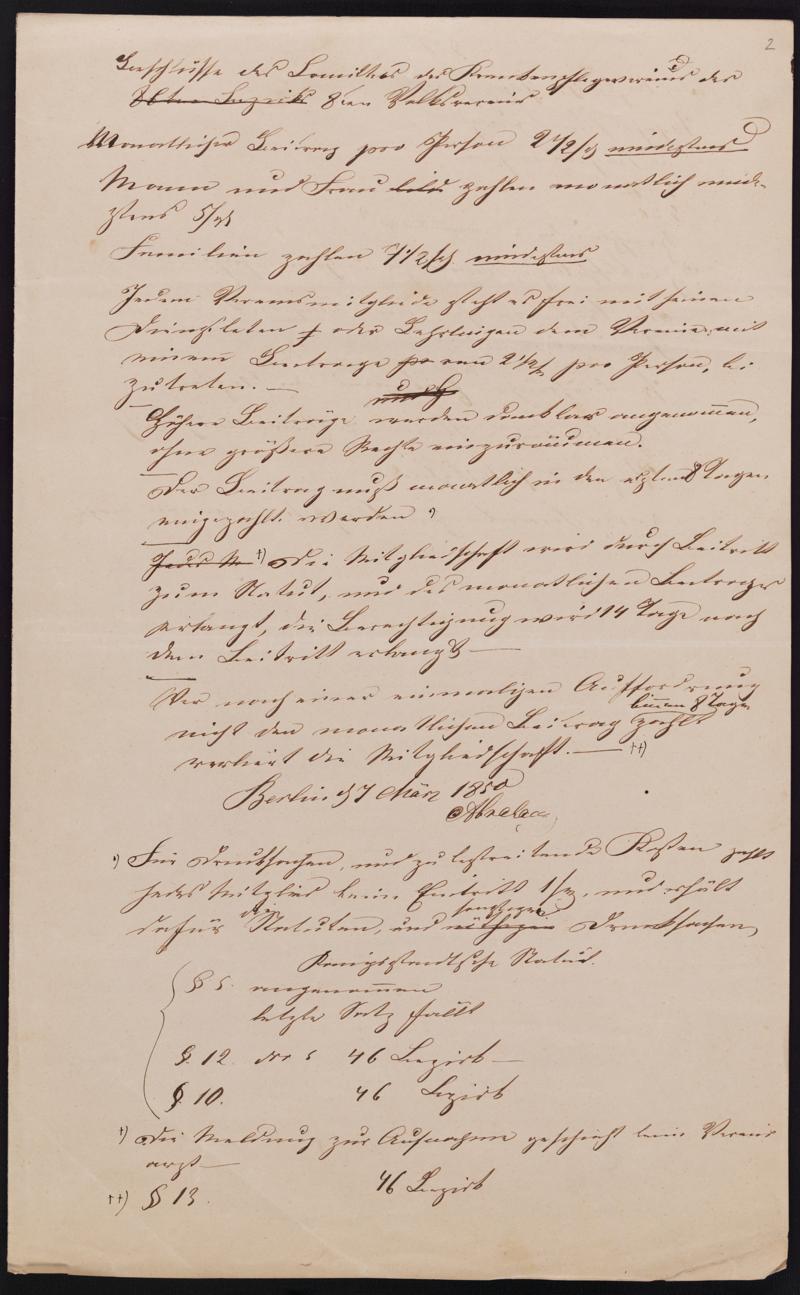 2
Beschlüsse des Comittes des Krankenpflegevereins des
8ten Bezirks 8ten Volksverein
Monatlicher Beitrag pro Person 2 1/2 sg mindestens
Mann und Frau beid zahlen monatlich minde-
stens 5 sg
Familien zahlen 7 1/2 sg mindestens
Jedem Vereinsmitgliede steht es frei mit seinen
Dienstleuten oder Lehrlingen dem Vereine mit
einem Beitrage von 2 1/2 pro Person, bei
zutreten. —
Höhere Beiträge werden dankbar angenommen,
ohne größere Rechte einzuräumen.
Der Beitrag muß monatlich in den ersten 8 Tagen
eingezahlt werden
Jedes M †) Die Mitgliedschaft wird durch Beitritt
zum Statut, und des monatlichen Beitrages
erlangt, die Berechtigung wird 14 Tage nach
dem Beitritt erlangt —
Wer nach einer einmaligen Aufforderung
binnen 8 Tage
nicht den monatlichen Beitrag zahlt
verliert die Mitgliedschaft. — ††)
Berlin d 7 März 1850
Für Drucksachen, und zu bestreitende Kosten zahlt
jedes Mitglied beim Eintritt 1 sg, und erhält
dafür die Statuten, und sonstigen nöthigen Drucksachen
Königsstadtsche Statut.
§ 5. angenommen
letzte Satz fällt
§. 12. des 46 Bezirk —
§. 10. 46 Bezirk
†) Die Meldung zur Aufnahme geschieht beim Vereins
arzt —
††) § 13. 46 Bezirk